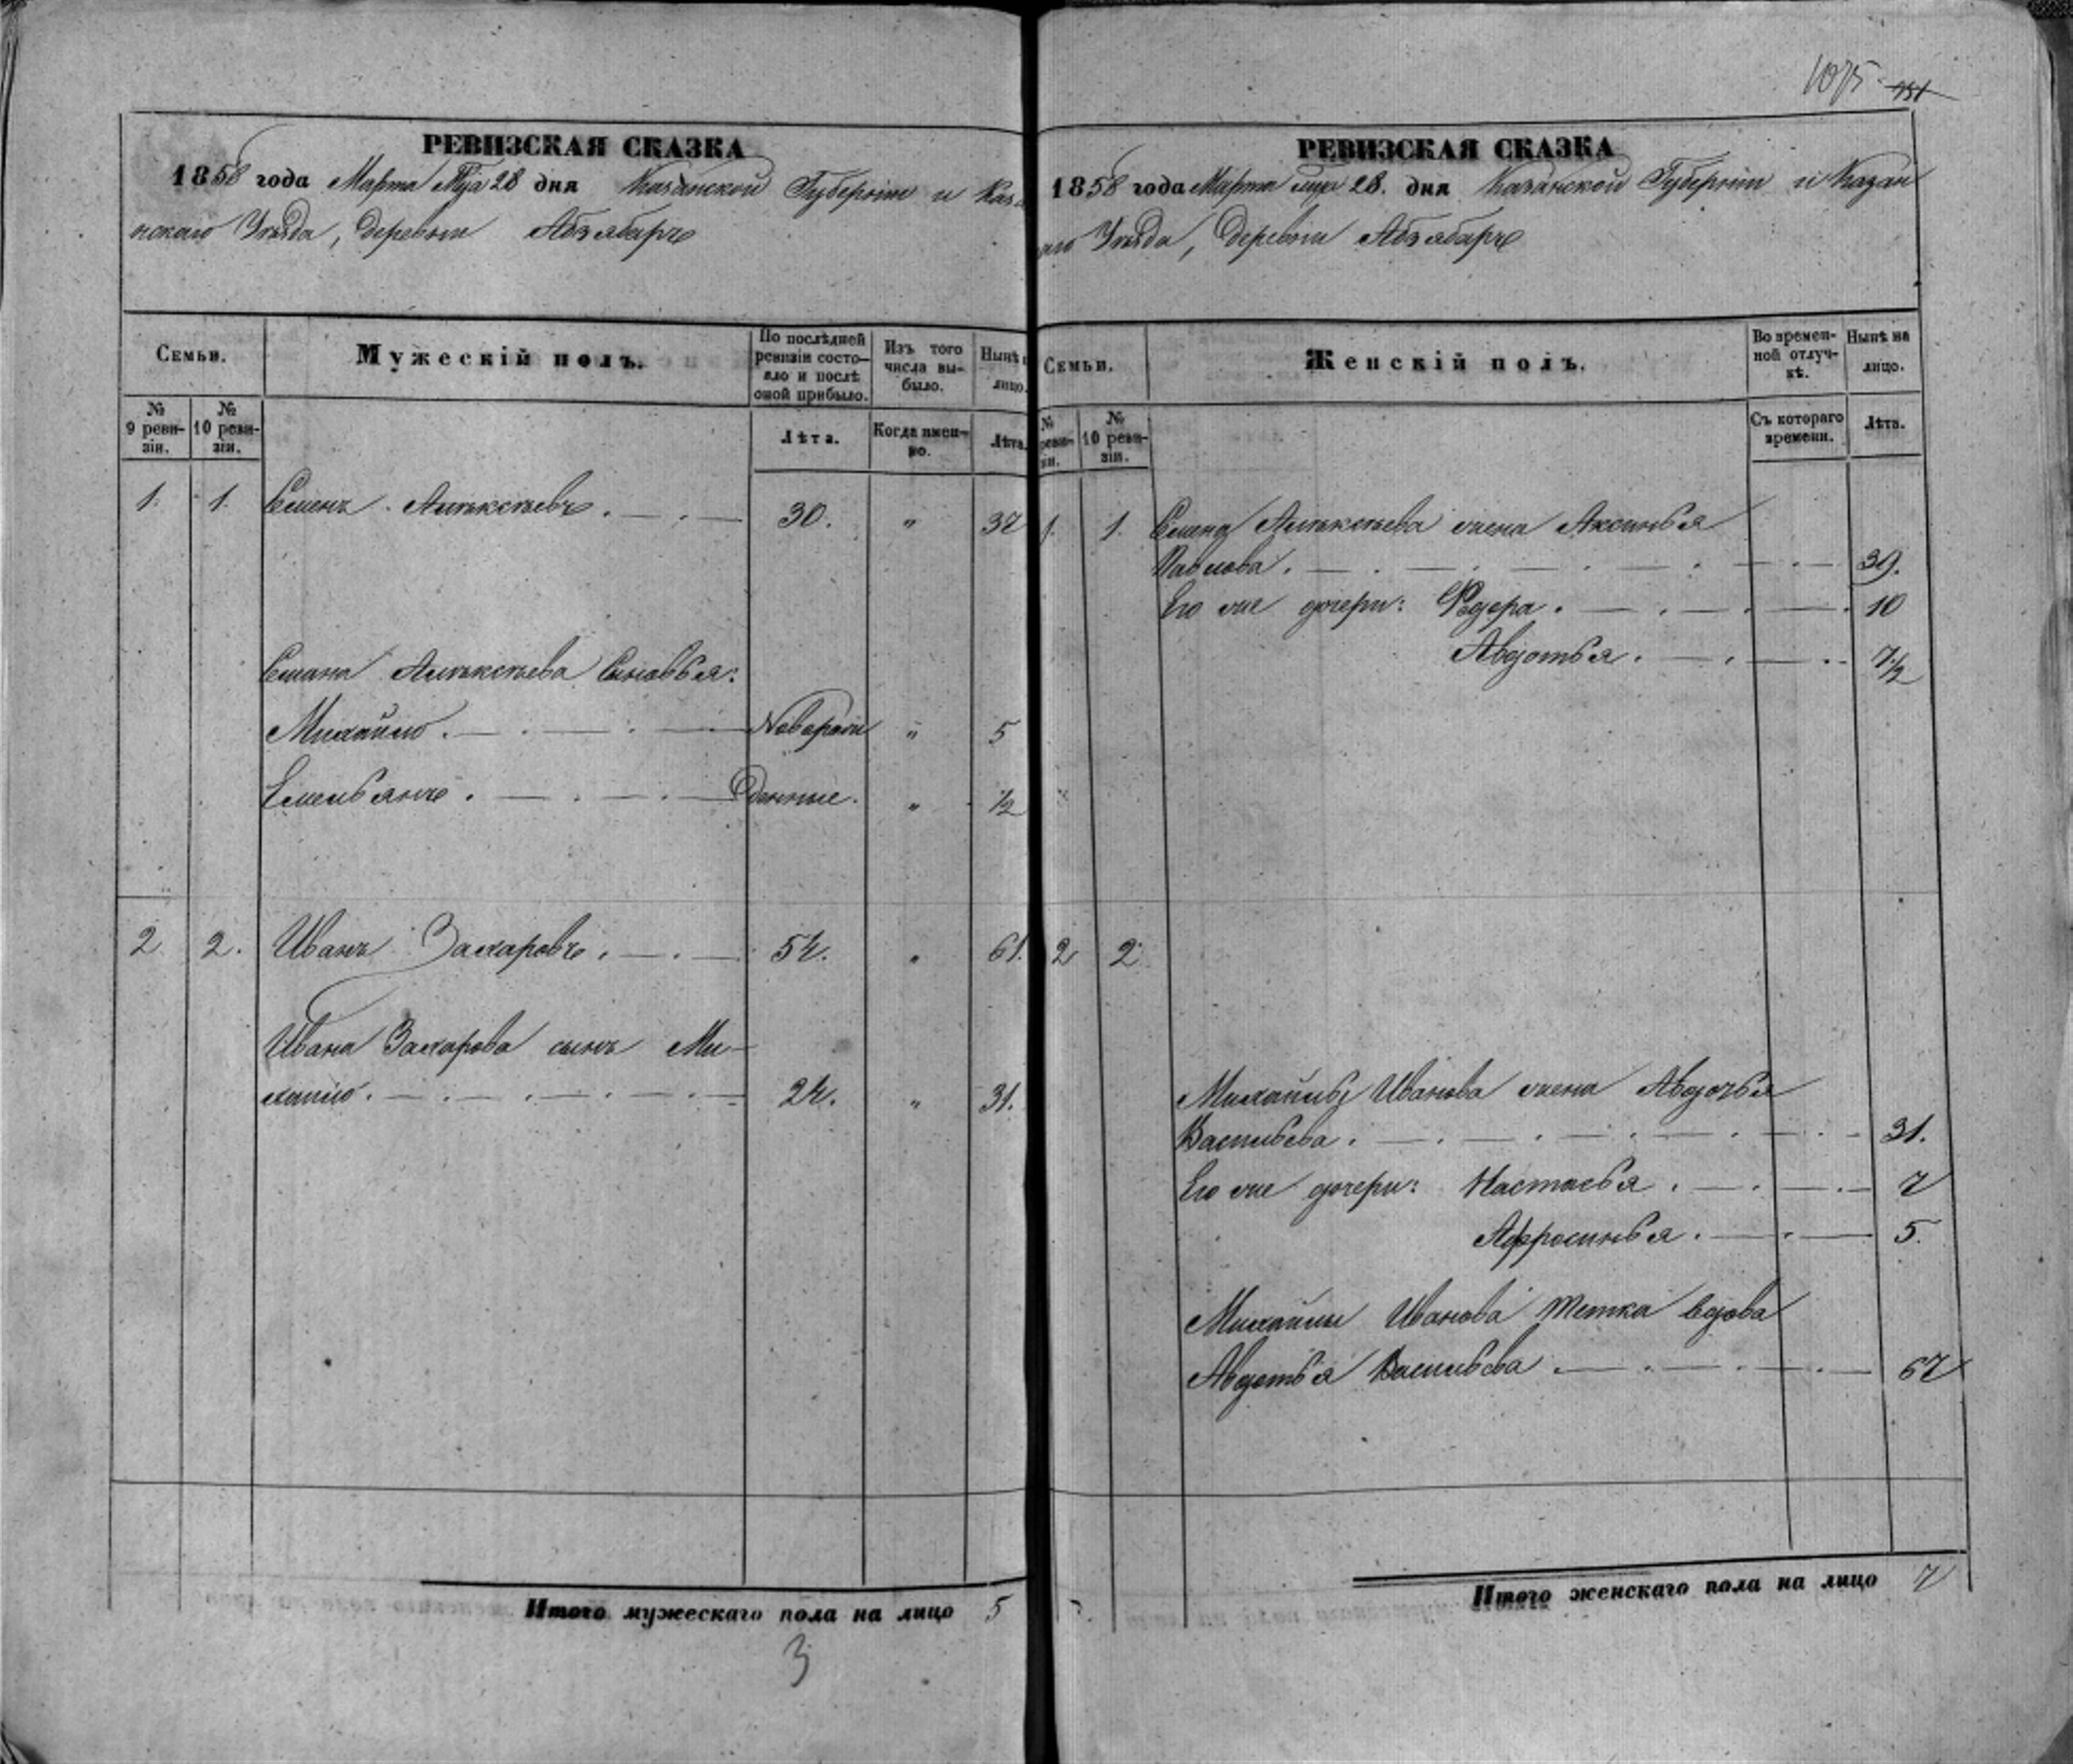 1075 751
РЕВИЗСКАЯ СКАЗКА
1858 года Марта М-ца 28 дня Казанской Губернiи и Каза
нскаго Уѣзда, деревни Абзябаръ
Семьи.
Мужескiй полъ.
По послѣдней ревизiи состояло и послѣ оной прибыло.
Изъ того числа выбыло.
Нынѣ н лицо.
№ 9 ревизiи.
№ 10 ревизiи.
Лѣта.
Когда именно.
Лѣта.
1. 1. Семенъ Алѣксѣевъ. 30. " 37
Семана Алѣксѣева Сыновья:
Михайло. Новорож " 5
Емельянъ. денные. " 1/2
2. 2. Иванъ Захаровъ. 54. " 61.
Ивана Захарова сынъ Ми-
хайло. 24. " 31.
Итого мужескаго пола на лицо 5
3
РЕВИЗСКАЯ СКАЗКА
1858 года Марта м-ца 28. дня Казанской Губернiи и Казан
аго Уѣзда, деревни Абзябаръ
Семьи.
Женскiй полъ.
Во временной отлучкѣ.
Нынѣ на лицо.
№ ревизiи.
№ 10 ревизiи.
Съ котораго времени.
Лѣта.
1. 1. Семена Алѣксѣева жена Аксинья
Павлова. 39.
Его же дочери: Федера. 10
Авдотья. 7 1/2
2 2
Михайлы Иванова жена Авдотья
Васильева. 31.
Его же дочери: Настасья. 7
Афросинья. 5.
Михайлы Иванова тетка вдова
Авдотья Васильева 67
Итого женскаго пола на лицо 7